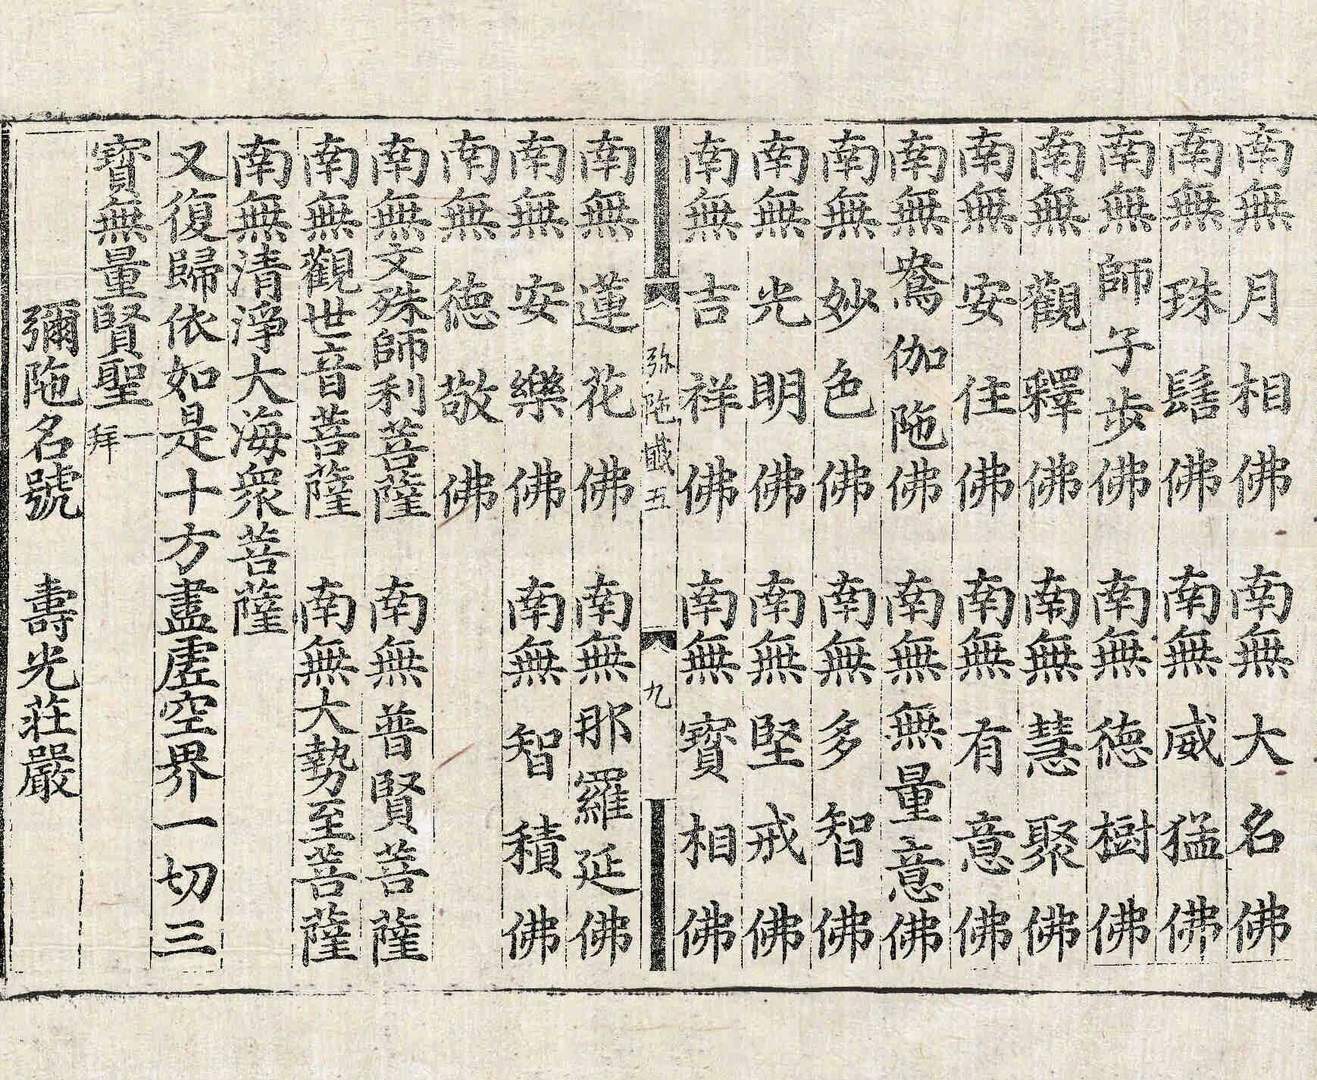 南無月相佛　南無大名佛
南無珠髻佛　南無威猛佛
南無師子步佛　南無德樹佛
南無觀釋佛　南無慧聚佛
南無安住佛　南無有意佛
南無鴦伽陁佛　南無無量意佛
南無妙色佛　南無多智佛
南無光明佛　南無堅戒佛
南無吉祥佛　南無寶相佛
弥陁懺五　九
南無蓮花佛　南無那羅延佛
南無安樂佛　南無智積佛
南無德敬佛
南無文殊師利菩薩　南無普賢菩薩
南無觀世音菩薩　南無大勢至菩薩
南無清淨大海衆菩薩
又復歸依如是十方盡虛空界一切三
寶無量賢聖一拜
彌陁名號　壽光莊嚴